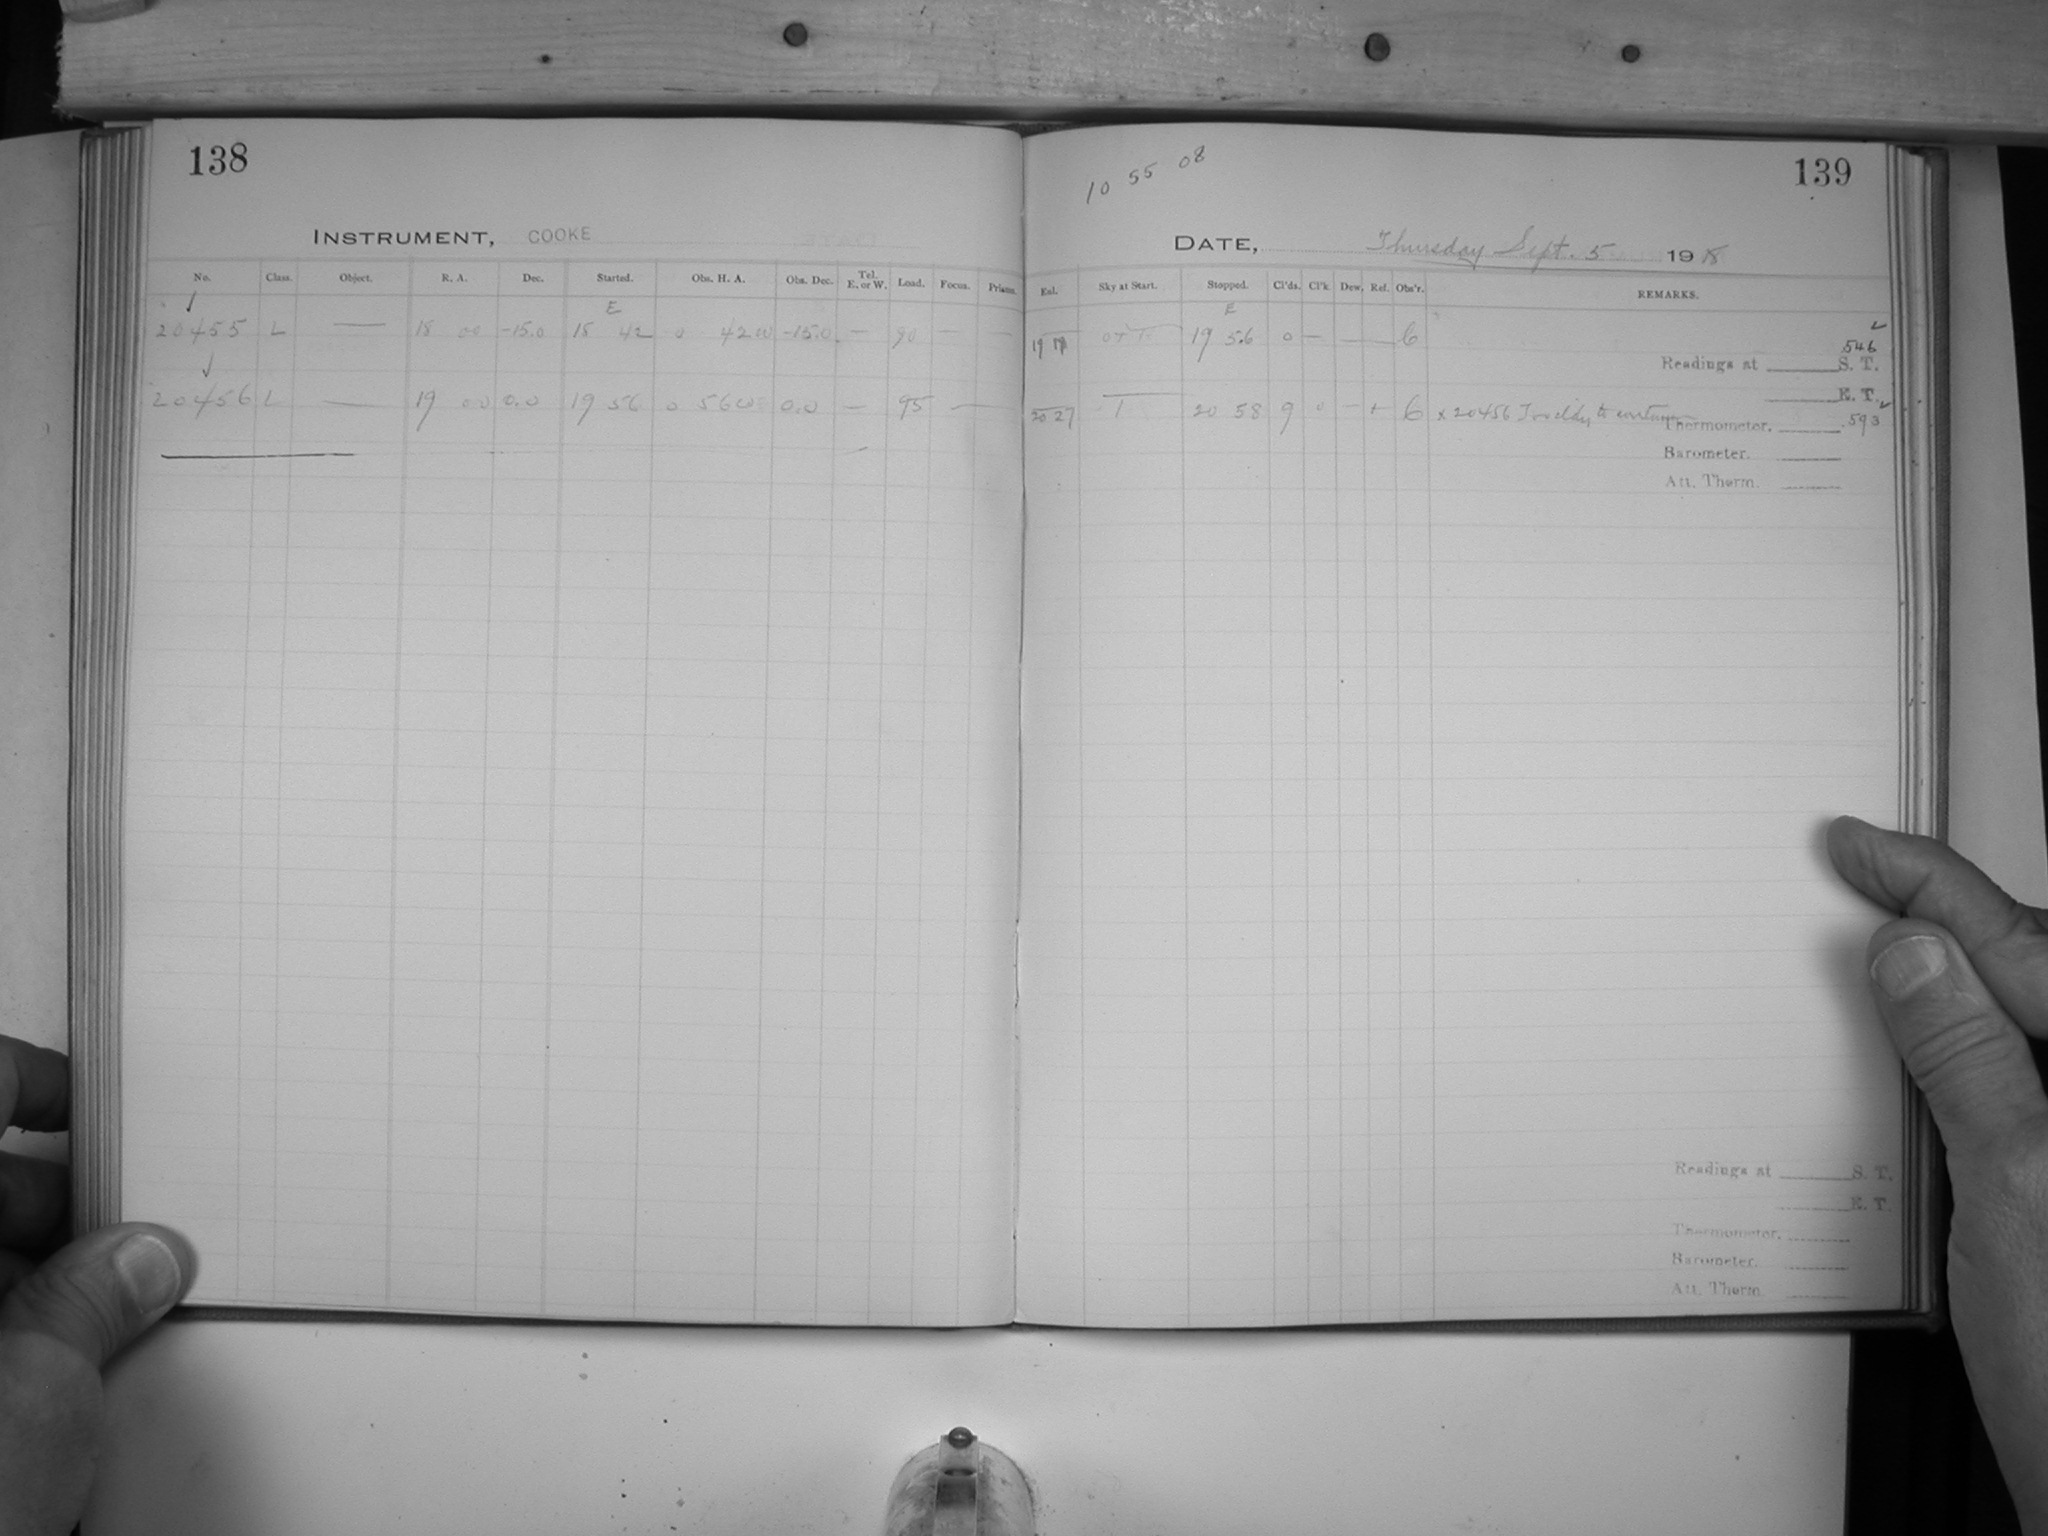 138
INSTRUMENT, COOKE
No. Class. Object. R. A. Dec. Started. Obs. H. A. Obs. Dec. Tel. E. or W. Load. Focus. Prisms.
E
20455 L — 18 00 -15.0 18 42 0 42 W -15.0 — 90 — —
20456 L — 19 00 0.0 19 56 0 56 W 0.0 — 95 —
10 55 08
139
DATE, Thursday Sept. 5 1918
Exl. Sky at Start. Stopped. Cl'ds. Cl'k Dew. Ref. Obs'r. REMARKS.
E
19 19 19 56 0 — — 6
546
Readings at S. T.
E. T.
20 27 1 20 58 9 0 — + 6 x 20456 Too cldy to continue
593
Thermometer.
Barometer.
Att. Therm.
Readings at S. T.
E. T.
Thermometer.
Barometer.
Att. Therm.